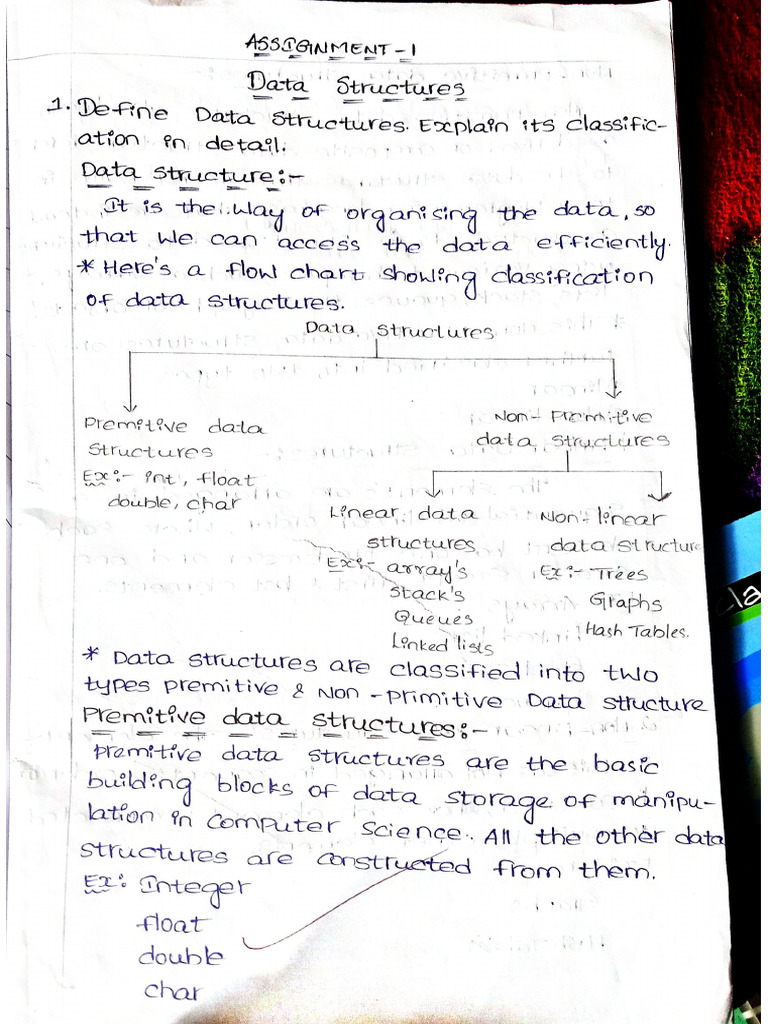 ASSIGNMENT-1
Data Structures
1. Define Data Structures. Explain its classific-
ation in detail.
Data structure:-
It is the way of organising the data, so
that we can access the data efficiently.
* Here's a flow chart showing classification
of data structures.
Data structures
Premitive data
structures
Ex:- int, float
double, char
Non-Premitive
data structures
Linear data
structures
Ex:- array's
stack's
Queues
Linked lists
Non-linear
data structure
Ex:- Trees
Graphs
Hash Tables.
* Data structures are classified into two
types premitive & Non-primitive Data structure
Premitive data structures:-
premitive data structures are the basic
building blocks of data storage of manipu-
lation in computer science. All the other data
structures are constructed from them.
Ex: Integer
float
double
char
cla